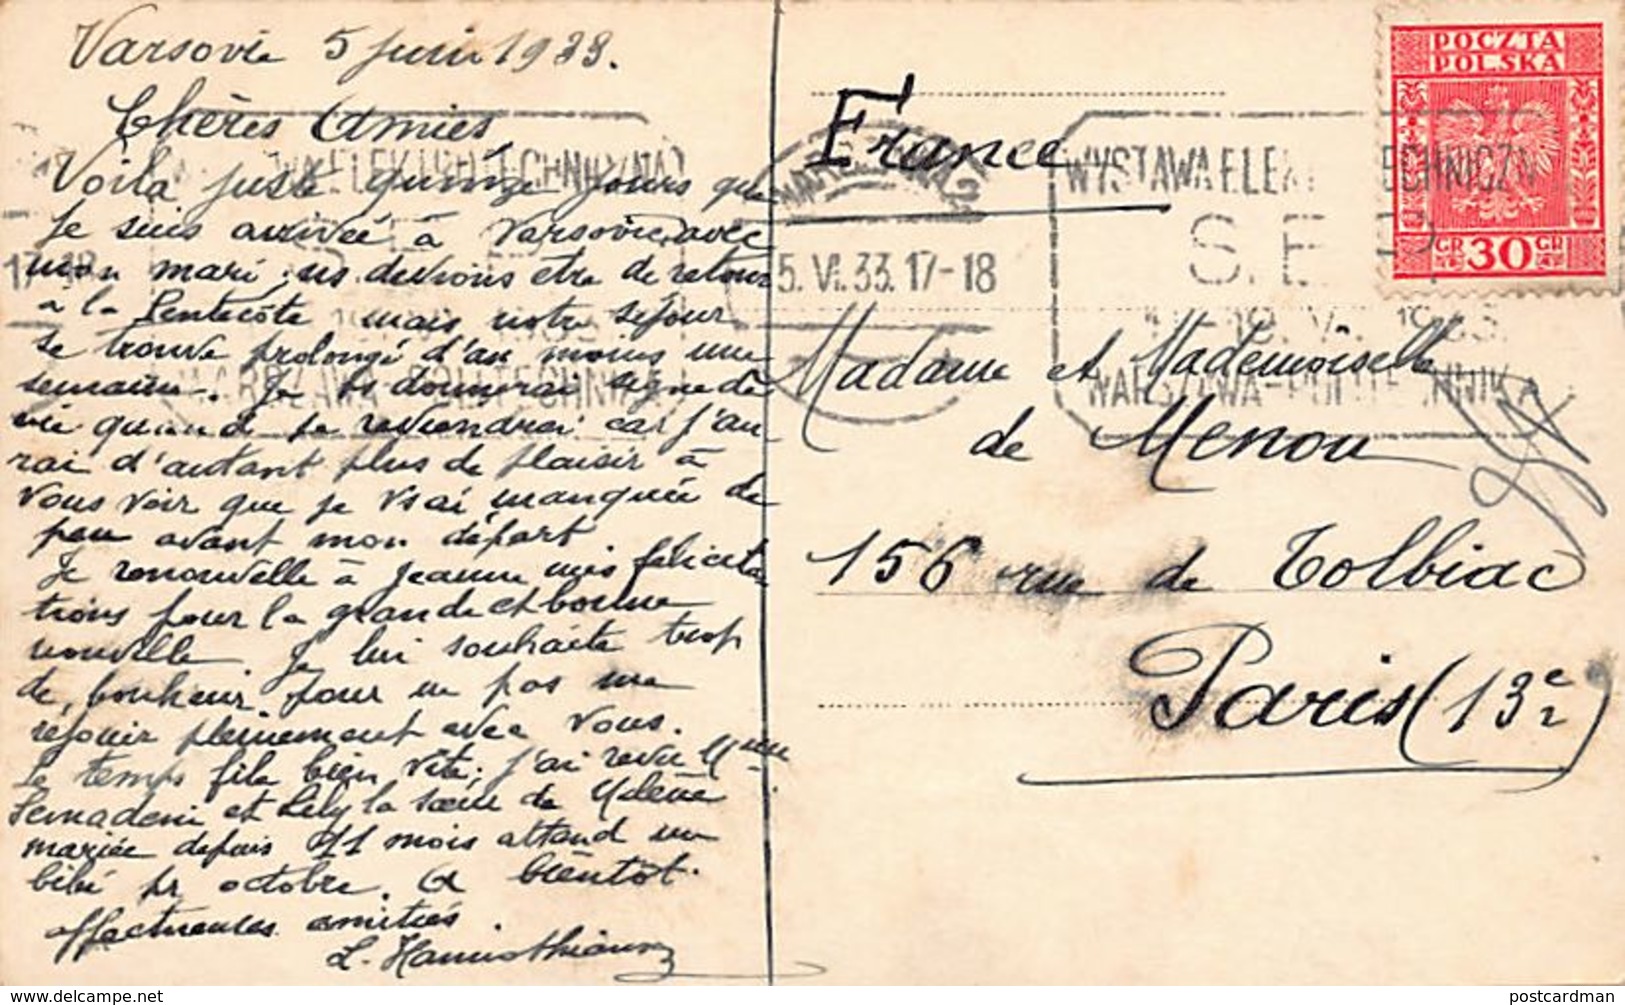 Varsovie 5 juin 1933.
Chères Amies,
Voilà juste quinze jours que
je suis arrivée à Varsovie, avec
mon mari; ns devions être de retour
à la Pentecôte mais notre séjour
se trouve prolongé d'au moins une
semaine. Je vs donnerai signe de
vie quand je reviendrai car j'au-
rai d'autant plus de plaisir à
vous voir que je vs ai manquée de
peu avant mon départ
Je renouvelle à Jeanne mes félicita
tions pour la grande et bonne
nouvelle. Je lui souhaite trop
de bonheur pour ne pas me
réjouir pleinement avec vous.
Le temps file bien vite; j'ai revu Mme
Semadeni et Lily la sœur de
mariée depuis 11 mois attend un
bébé pr octobre. A bientôt.
affectueuses amitiés
L.
France
POCZTA
POLSKA
GR 30 GR
WARSZAWA 2
5.VI.33.17-18
17-18
WYSTAWA ELEKTROTECHNICZNA
S.E.P.
1933
WARSZAWA-POLITECHNIKA
Madame et Mademoiselle
de Menou
156 rue de Tolbiac
Paris (13e)
postcardman